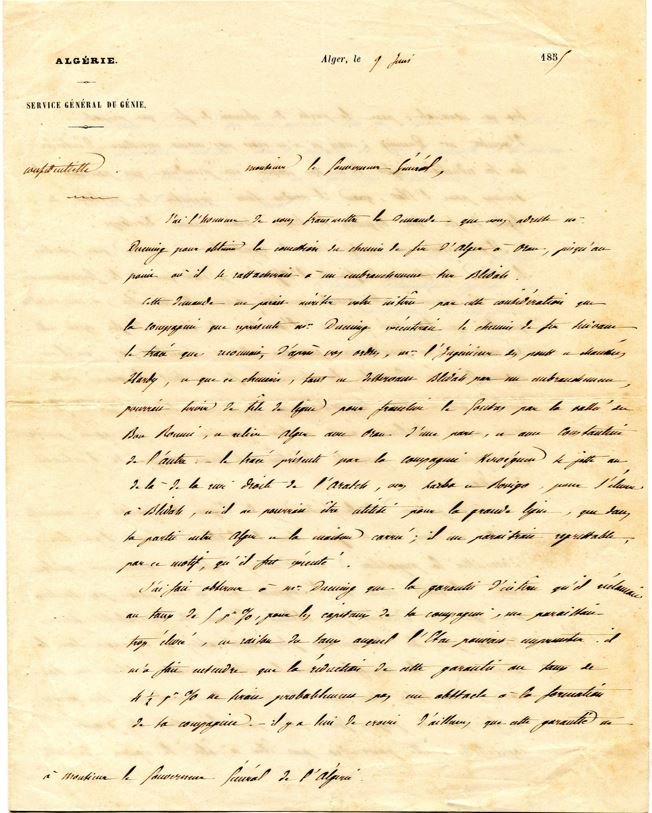 ALGÉRIE.
Alger, le 9 Juin 1855
SERVICE GÉNÉRAL DU GÉNIE.
confidentielle
Monsieur le Gouverneur Général,
J'ai l'honneur de vous transmettre la demande que vous adresse mr.
Ducuing pour obtenir la concession du chemin de fer d'Alger à Oran, jusqu'au
point où il se rattacherait à un embranchement sur Blidah.
Cette demande me paraît mériter votre intérêt par cette considération que
la compagnie que représente mr. Ducuing exécuterait le chemin de fer suivant
le tracé que reconnut, d'après vos ordres, mr. l'Ingénieur des ponts et chaussées
Hardy, et que ce chemin, tout en desservant Blidah par un embranchement,
pourrait servir de tête de ligne pour franchir le Gontas par la vallée du
Bou Roumi, et relier Alger avec Oran d'une part, et avec Constantine
de l'autre. - le tracé présenté par la compagnie se jette au
delà de la rive droite de l'Aratch, vers Larba et Rovigo, pour s'élever
à Blidah, et il ne pourrait être utilisé pour la grande ligne, que dans
sa partie entre Alger et la maison carrée; il me paraîtrait regrettable,
par ce motif, qu'il fut exécuté.
J'ai fait observer à mr. Ducuing que la garantie d'intérêt qu'il réclamait
au taux de 5 p. %, pour les capitaux de sa compagnie, me paraissait
trop élevée, en raison du taux auquel l'Etat pouvait emprunter. il
m'a fait entendre que la réduction de cette garantie au taux de
4 ½ p. % ne serait probablement pas un obstacle à la formation
de sa compagnie. - il y a lieu de croire d'ailleurs que cette garantie ne
à Monsieur le Gouverneur Général de l'Algérie.